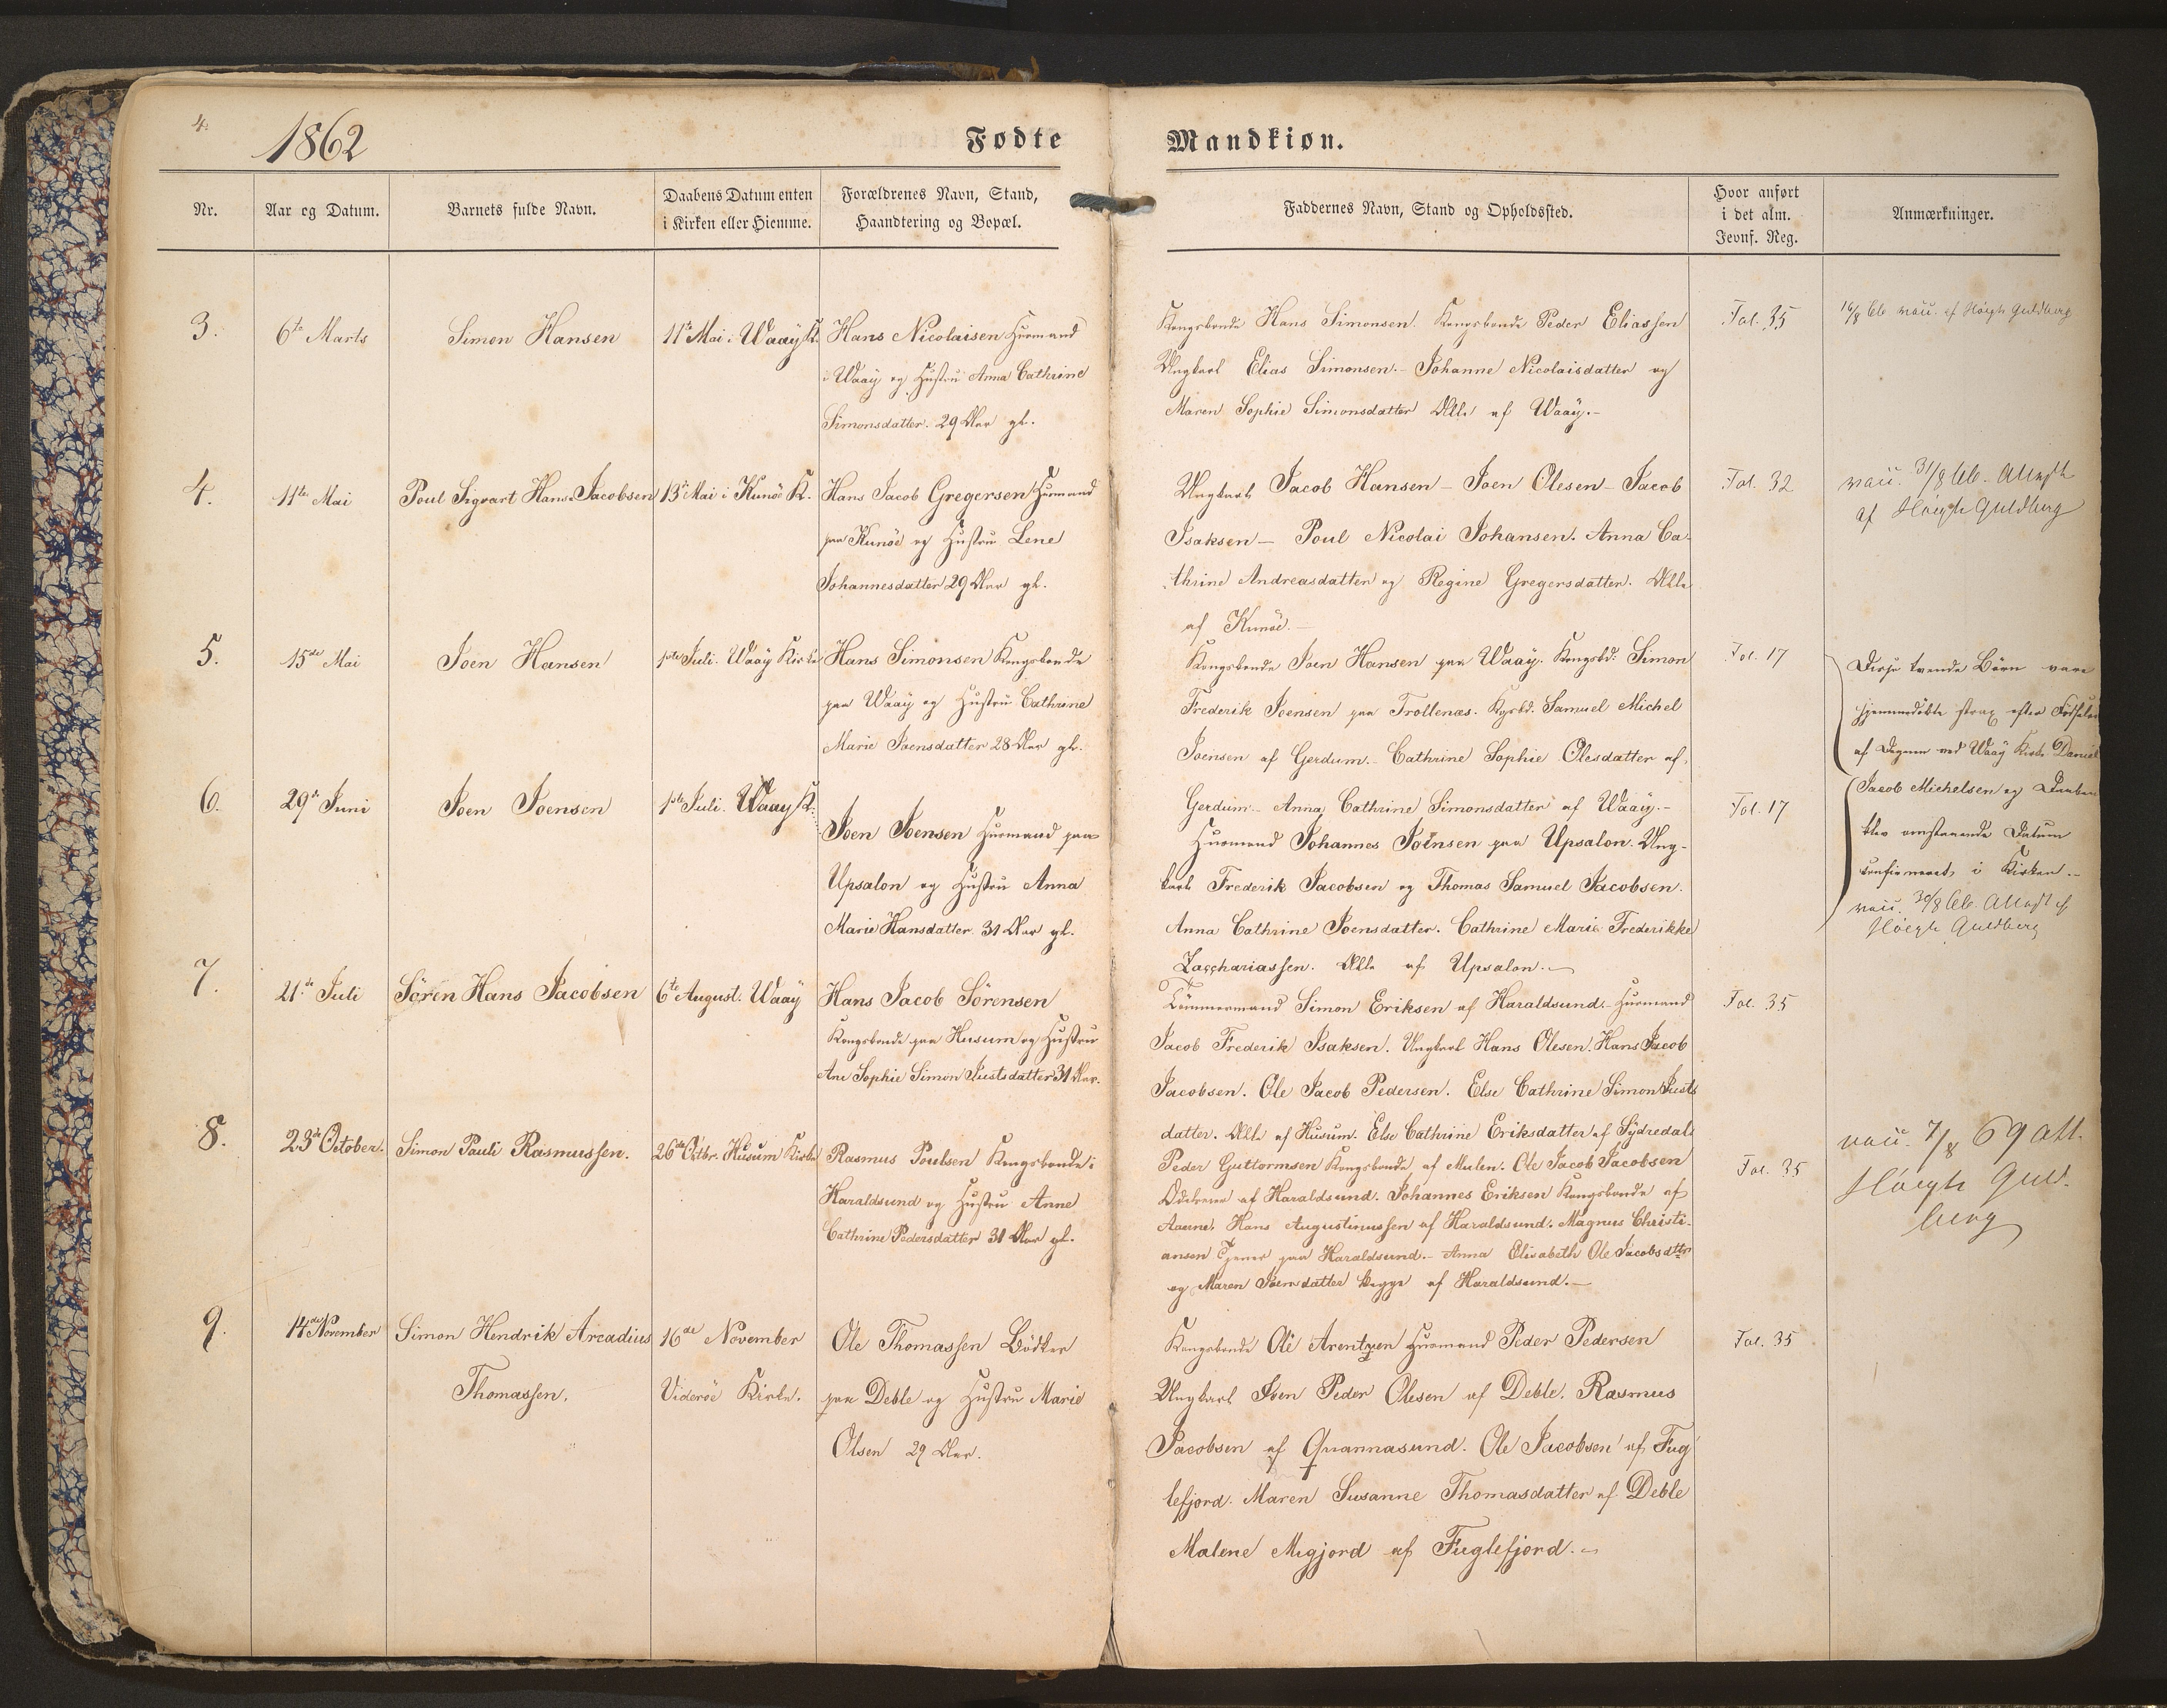 4.
1862
Fødte
Mandkiøn.
Nr.
Aar og Datum.
Barnets fulde Navn.
Daabens Datum enten
i Kirken eller Hiemme.
Forældrenes Navn, Stand,
Haandtering og Bopæl.
Faddernes Navn, Stand og Opholdssted.
Hvor anført
i det alm.
Jevnf. Reg.
Anmærkninger.
3.
6te Marts
Simon Hansen
11te Mai. Waaÿ K.
Hans Nicolaisen Huusmand
i Waaÿ og Hustru Anna Cathrine
Simonsdatter. 29 Aar gl.
Kongsbonde Hans Simonsen. Kongsbonde Peder Eliassen
Ungkarl Elias Simonsen. - Johanne Nicolaisdatter og
Maren Sophie Simonsdatter Alle af Waaÿ. -
Fol. 35
16/8 66 vacc. af Høegh Guldberg
4.
11te Mai
Poul Sigvart Hans Jacobsen
13de Mai i Kunöe K.
Hans Jacob Gregersen Huusmand
paa Kunöe og Hustru Lene
Johannesdatter 29 Aar gl.
Ungkarl Jacob Hansen - Joen Olesen - Jacob
Isaksen - Poul Nicolai Johansen. Anna Ca-
thrine Andreasdatter og Regine Gregersdatter. Alle
af Kunöe. -
Fol. 32
vacc. 31/8 66 - Attest
af Høegh Guldberg
5.
15de Mai
Joen Hansen
1ste Juli. Waaÿ Kirke
Hans Simonsen Kongsbonde
paa Waaÿ og Hustru Cathrine
Marie Joensdatter 28 Aar gl.
Kongsbonde Joen Hansen paa Waaÿ. Kongsbd: Simon
Frederik Joensen paa Trollenæs. Kgsbd. Samuel Michel
Joensen af Gerdum. - Cathrine Sophie Olesdatter af
Gerdum - Anna Cathrine Simonsdatter af Waaÿ. -
Fol. 17
Disse tvende Börn vare
hjemmedöbte strax efter Födselen
af Degnen ved Waaÿ Kirke Daniel
Jacob Michelsen og Daaben
blev omstaaende Datum
confirmeret i Kirken. -
vacc. 30/8 66. Attest af
Høegh Guldberg
6.
29de Juni
Joen Joensen
1ste Juli. Waaÿ K.
Joen Joensen Huusmand paa
Upsalon og Hustru Anna
Marie Hansdatter 31 Aar gl.
Huusmand Johannes Joensen paa Upsalon. Ung-
karl Frederik Jacobsen og Thomas Samuel Jacobsen.
Anna Cathrine Joensdatter. Cathrine Marie Frederikke
Zacchariassen. Alle af Upsalon. -
Fol. 17
7.
21de Juli
Sören Hans Jacobsen
6te August. Waaÿ
Hans Jacob Sörensen
Kongsbonde paa Husum og Hustru
Ane Sophie Simon Justsdatter 31 Aar.
Tömmermand Simon Eriksen af Haraldsund. Huusmand
Jacob Frederik Isaksen. Ungkarl Hans Olesen. Hans Jacob
Jacobsen. Ole Jacob Pedersen. Else Cathrine Simon Justs
datter. Alle af Husum. Else Cathrine Eriksdatter af Sÿdredal
Fol. 35
8.
23de October.
Simon Pauli Rasmussen.
26de Octbr. Husum Kirke
Rasmus Poulsen Kongsbonde i
Haraldsund og Hustru Anne
Cathrine Pedersdatter 31 Aar gl.
Peder Guttormsen Kongsbonde af Mulen. Ole Jacob Jacobsen
Odelsbonde af Haraldsund. Johannes Eriksen Kongsbonde af
Hans Augustinussen af Haraldsund. Magnus Christi-
ansen Tjener paa Haraldsund. - Anna Elisabeth Ole Jacobsdttr
og Maren Joensdatter begge af Haraldsund. -
Fol. 35
vacc. 7/8 69 att.
Høegh Guld-
berg
9.
14de November
Simon Hendrik Arcadius
Thomassen.
16de November
Videröe Kirke.
Ole Thomassen Bödker
paa Deble og Hustru Marie
Olsen 29 Aar.
Kongsbonde Ole Arentzen Huusmand Peder Pedersen
Ungkarl Iven Peder Olesen af Deble. Rasmus
Jacobsen af Qvannasund. Ole Jacobsen af Fug
lefjord. Maren Susanne Thomasdatter af Deble
Malene Migjord af Fuglefjord. -
Fol. 35